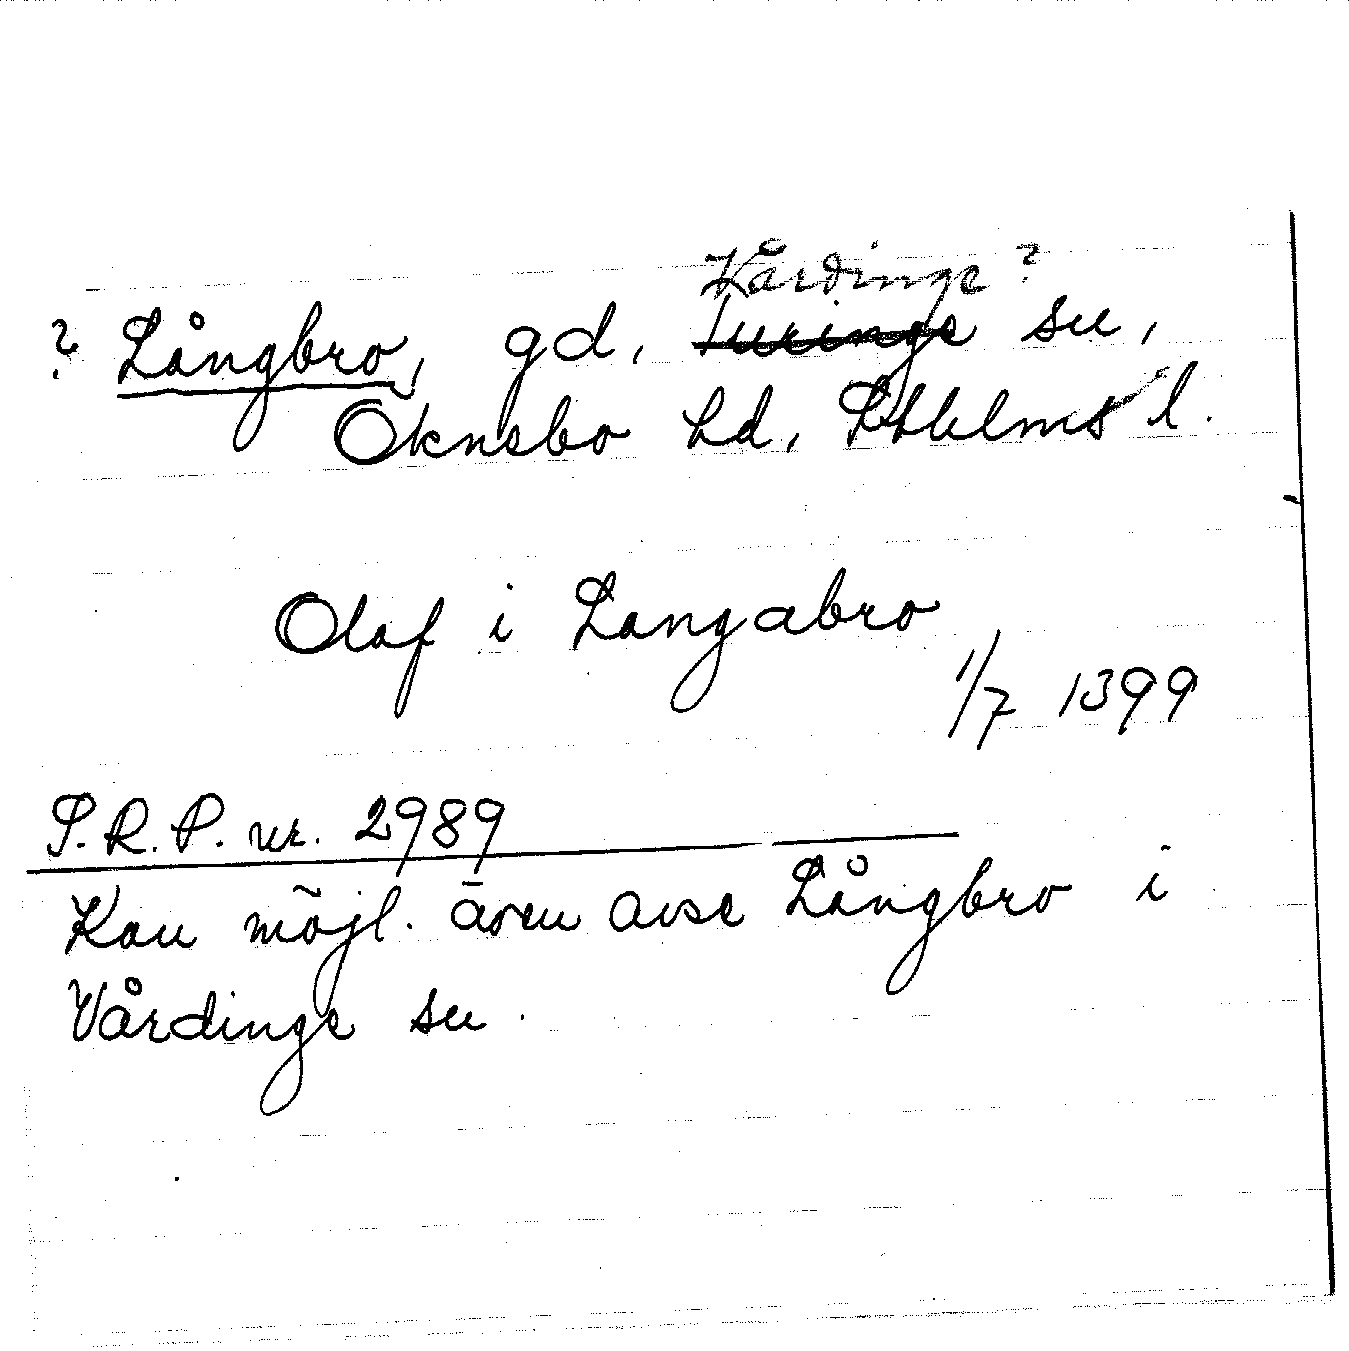 Vårdinge ?
? Långbro, gd, Turinge sn,
Öknebo hd, Sthlms l.
Olaf i Langabro
1/7 1399
S.R.P. nr. 2989
Kan möjl. även avse Långbro i
Vårdinge sn.